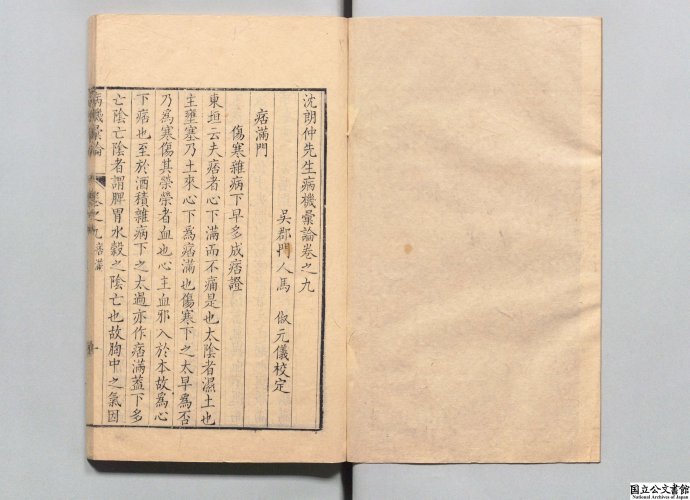 沈朗仲先生病機彙論卷之九
吳郡門人馬 俶元儀校定
痞滿門
傷寒雜病下早多成痞證
東垣云夫痞者心下滿而不痛是也太陰者濕土也
主壅塞乃土來心下爲痞滿也傷寒下之太早爲否
乃爲寒傷其榮榮者血也心主血邪入於本故爲心
下痞也至於酒積雜病下之太過亦作痞滿蓋下多
亡陰亡陰者謂脾胃水穀之陰亡也故胸中之氣因
病機彙論 卷之九 痞滿 一
国立公文書館
National Archives of Japan